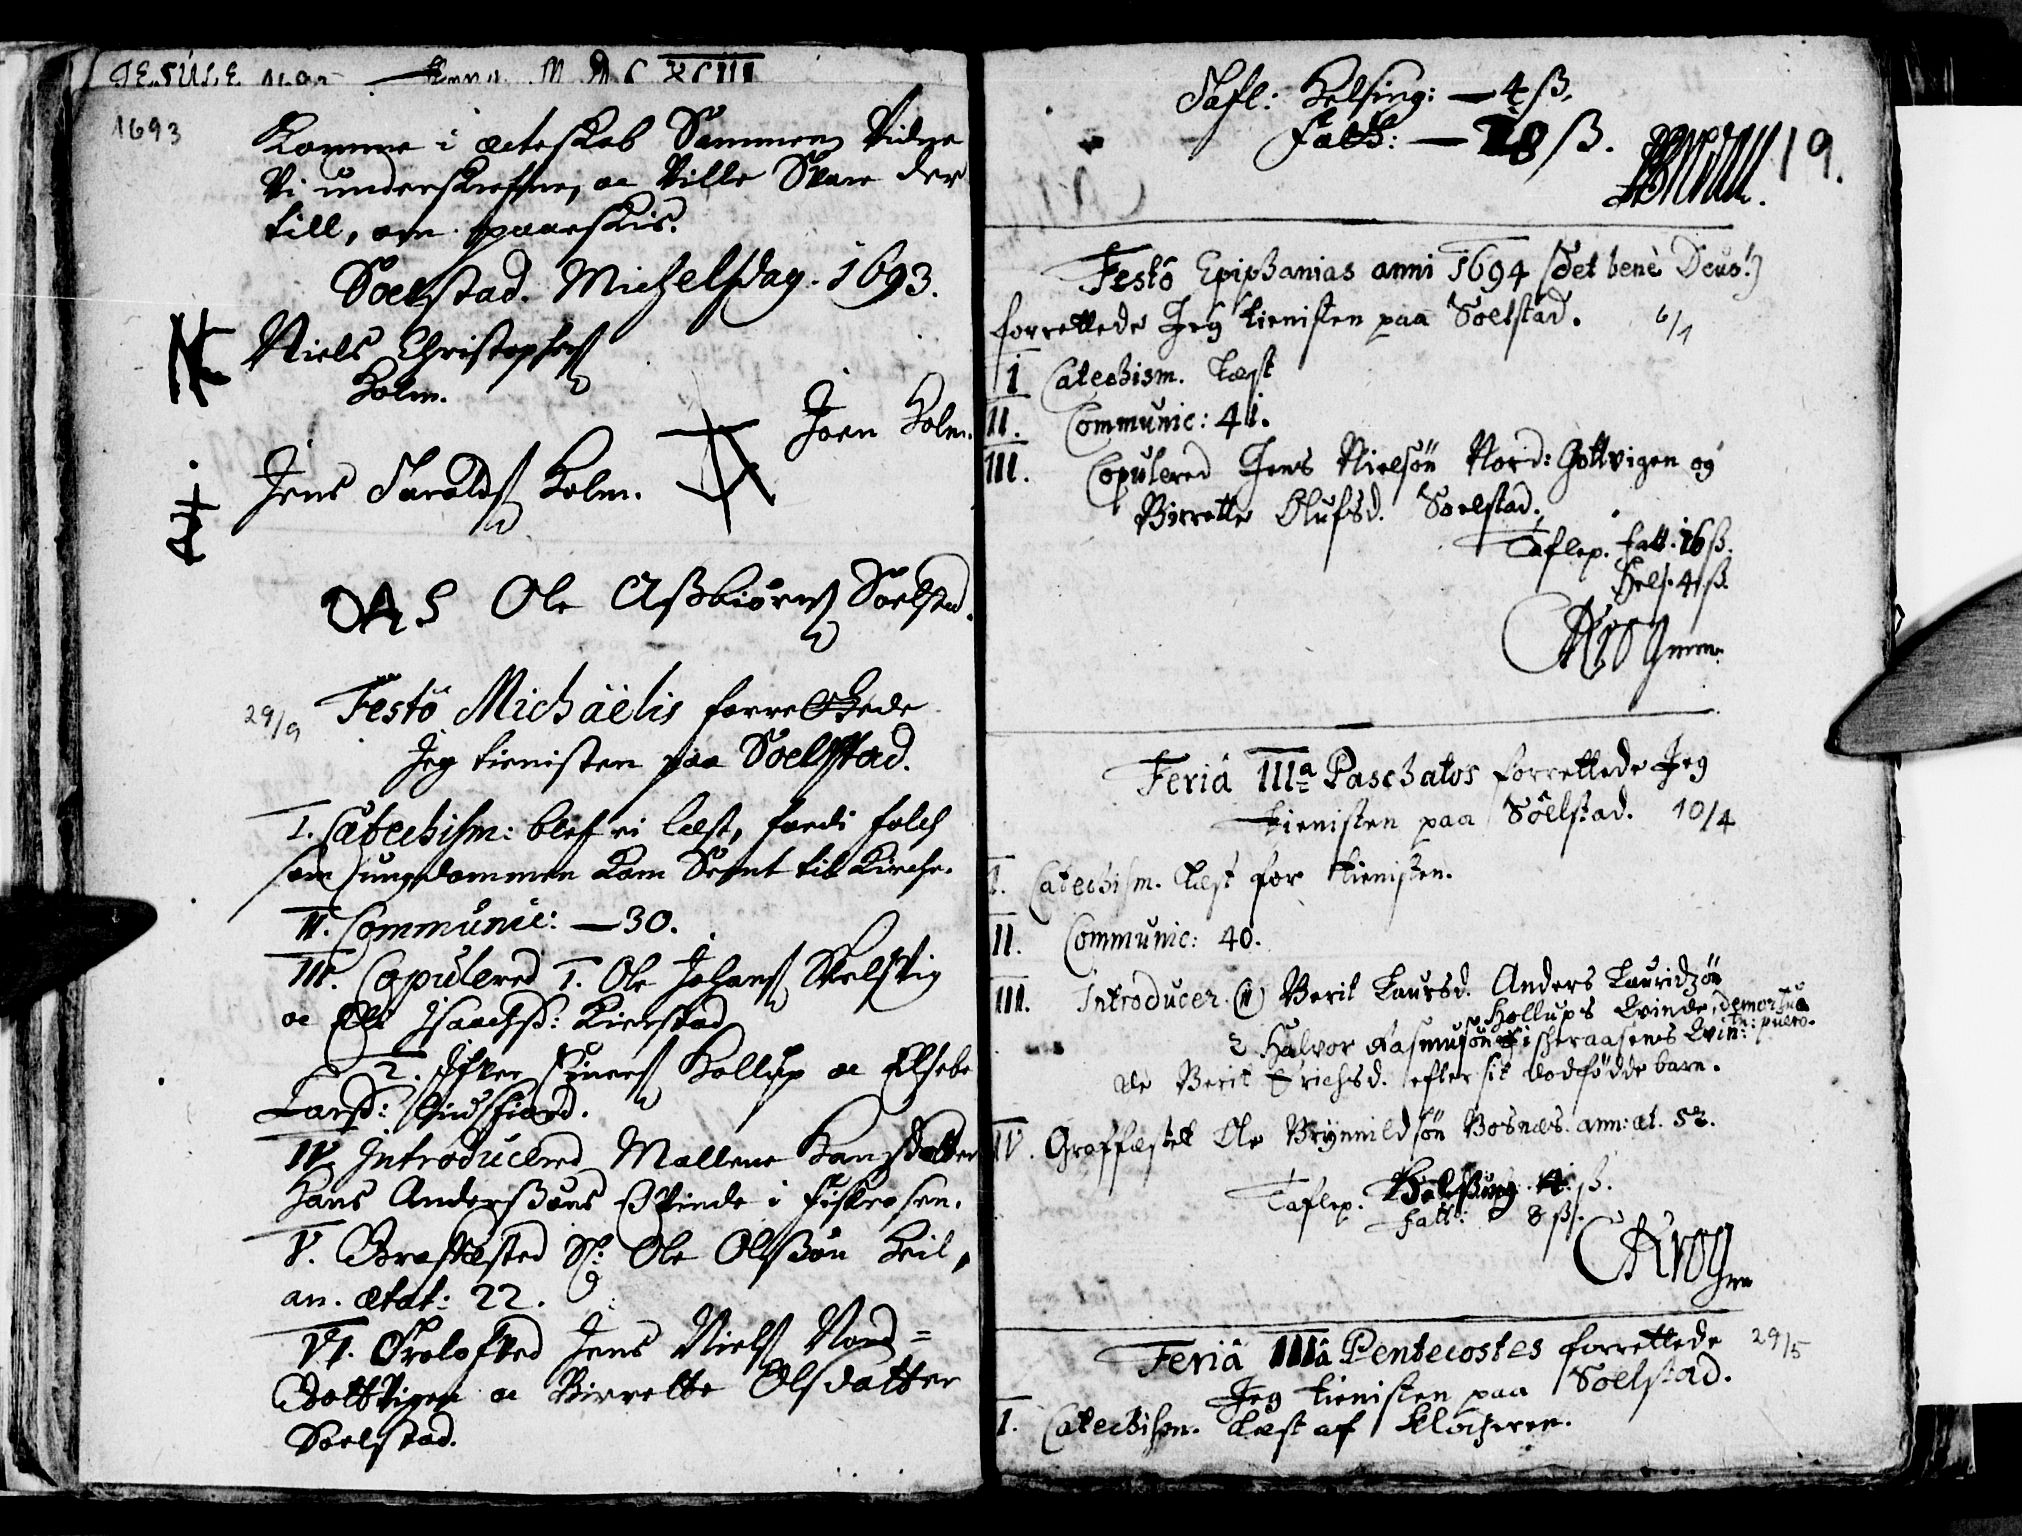 JESULE 1693 Anno MDCXCIII
1693
Komme i æcteskab Sammen, Vidne
Vi underskrefne, oc Ville Svare der
till, om paaeskis.
Soelstad. Michelsdag. 1693.
Niels Christophers
Holm.
Joen Holm.
Jens Haralds Holm.
OAS Ole Aßbiörns Soelstad.
29/9
Festô Michäelis forrettede
Jeg tienisten paa Soelstad.
I. Catechism: blef ei læst, fordi folch
som ungdommen kom Sent til kirche.
II. Communic: — 30.
III. Copulered 1. Ole Johans
oc Els Isachsd:
2. Hollup oc Elsebe
Larsd:
IV. Introducered Mallene Hansdatter
Hans Anderßöns Qvinde i Fiskrosen.
V. Grafæsted Sl: Ole Olßön Heil,
an. ætat: 22.
VI. Trolofved Jens Niels Nord=
Gottvigen oc Birrette Olsdatter
Soelstad.
Tafl: Helsing: — 4 ß.
Fatt: — 18 ß.
19.
Festô Epiphanias anni 1694 (det benè Deus!)
forrettede Jeg tienisten paa Soelstad. 6/1
I Catechism. Læst
II. Communic: 41.
III. Copulered Jens Nielsön Nord: Gottvigen og
Birrette Olufsd. Soelstad.
Taflep. Fatt. 16 ß.
Hels. 4 ß.
Krog mm.
Feriâ IIIa Paschatos forrettede Jeg
tienisten paa Söelstad. 10/4
I. Catechism. Læst for tienisten.
II. Communic: 40.
III. Introducer. (1) Berit Laursd. Anders Lauridzön
Hollups Qvinde, demortuo
2 Halvor Rasmusön Fischeraasens Qvin: puero.
de Berit Erichsd. efter sit dodfödde barn.
IV. Graffæstet Ole Brynnildsön Bosnæs. ann: æt. 52.
Taflep. Helsing. 4 ß.
Fatt: 8 ß.
Krog mm
Feriâ IIIâ Pentecostes forrettede 29/5
Jeg tienisten paa Soelstad.
I. Catechism. Læst af Klocheren.